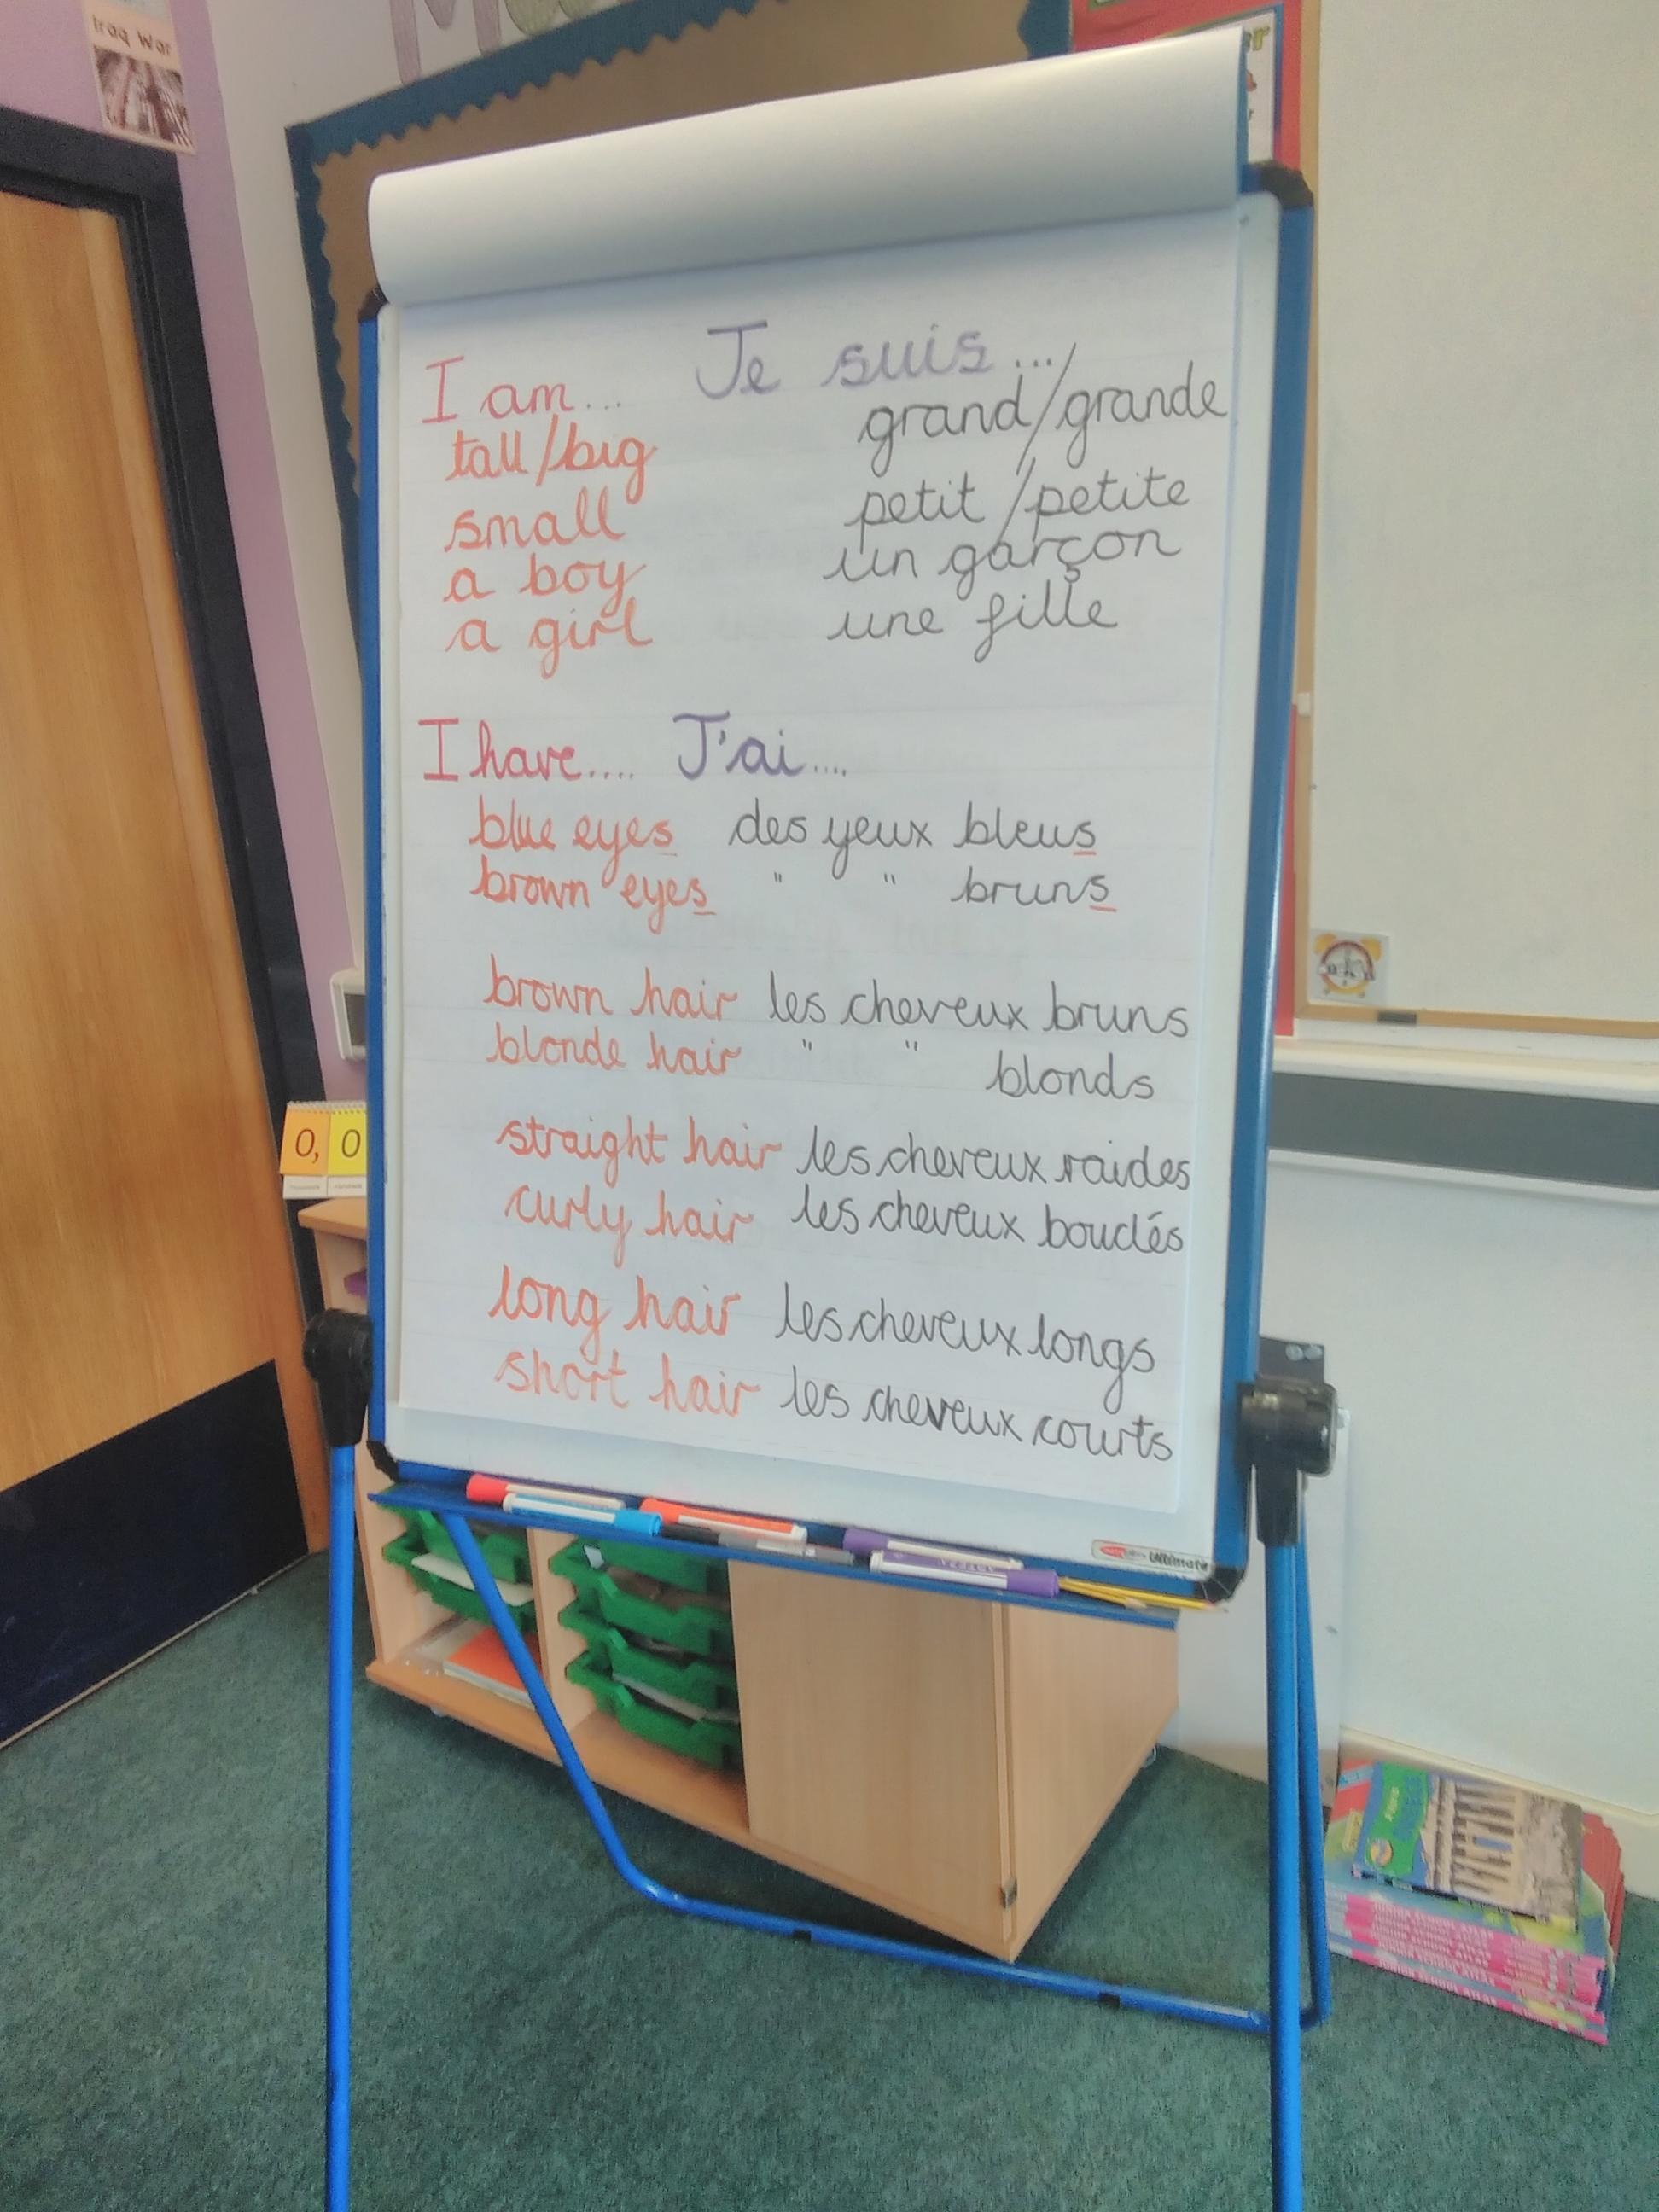 Iraq War
I am... Je suis...
tall/big grand/grande
small petit/petite
a boy un garçon
a girl une fille
I have.... J'ai....
blue eyes des yeux bleus
brown eyes " " bruns
brown hair les cheveux bruns
blonde hair " " blonds
straight hair les cheveux raides
curly hair les cheveux bouclés
long hair les cheveux longs
short hair les cheveux courts
0, 0
Ultimate
JUNIOR SCHOOL ATLAS